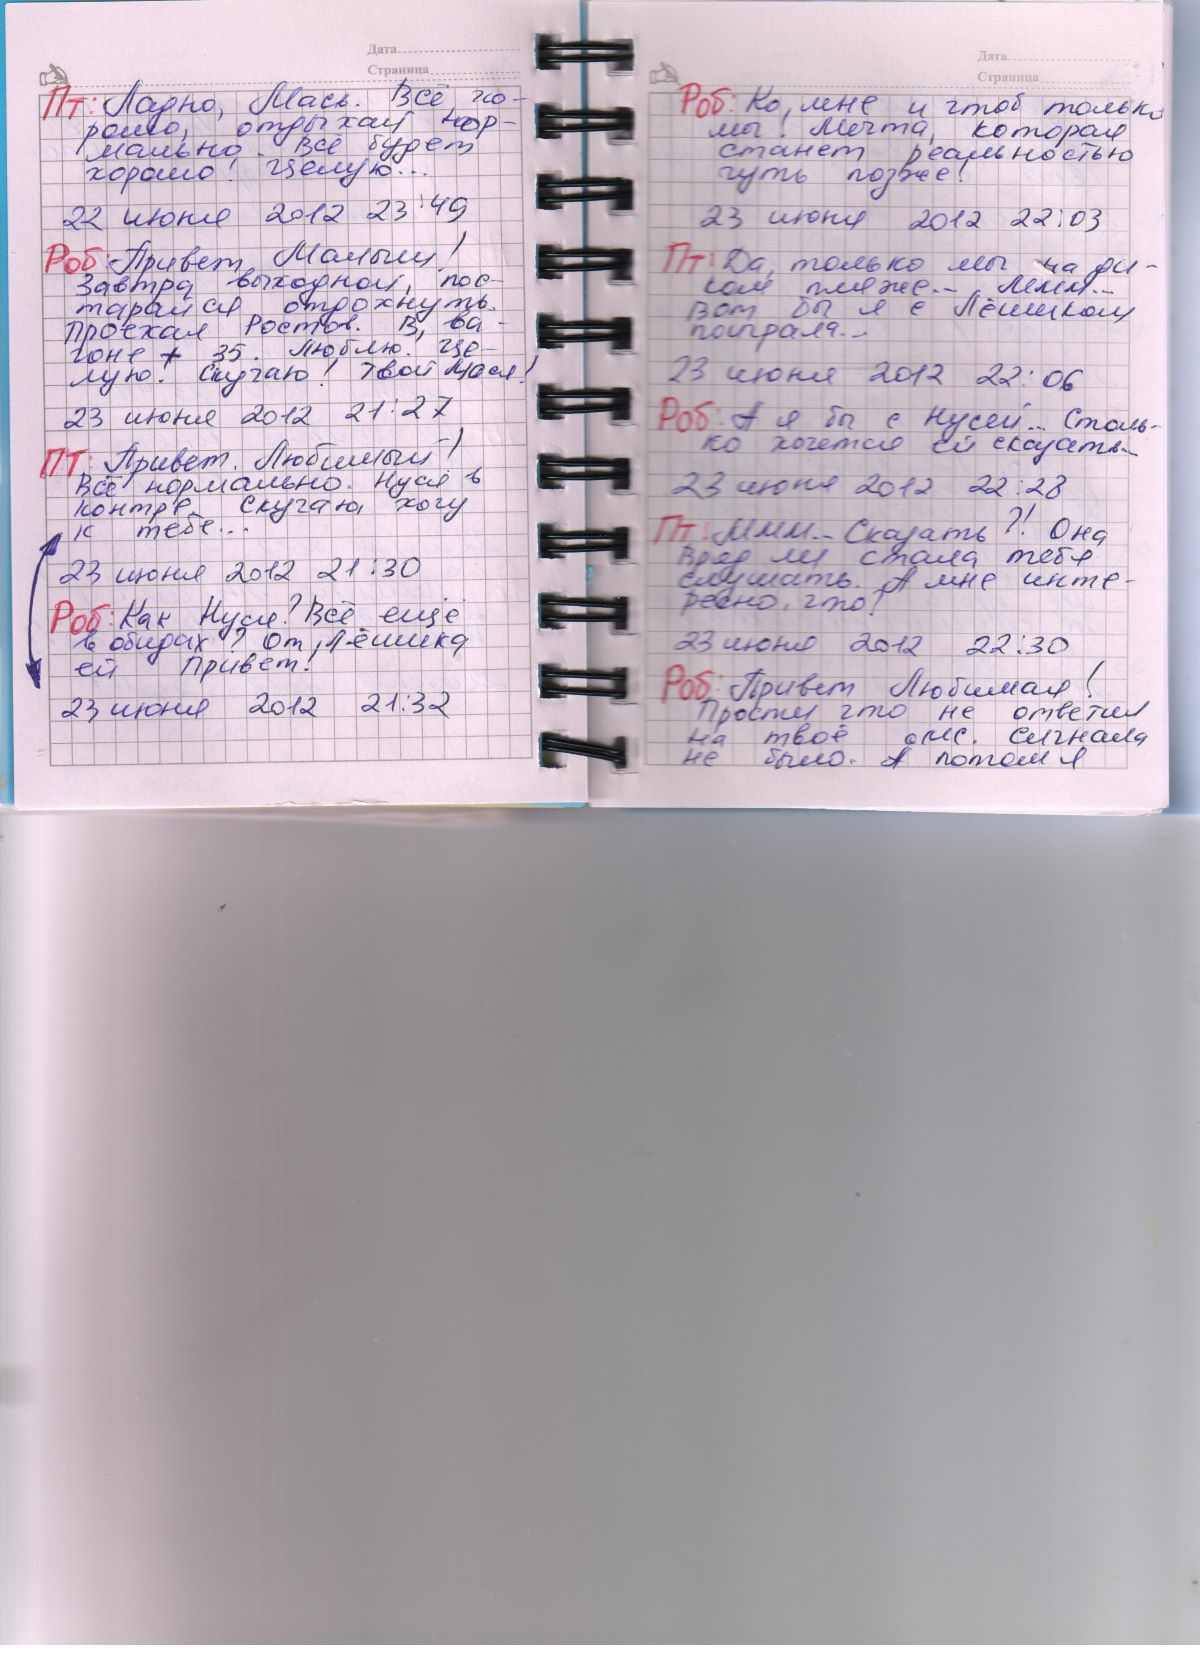 Дата
Страница
Пт: Ладно, Мась. Всё хо-
рошо, отдыхай нор-
мально. Всё будет
хорошо! Целую...
22 июня 2012 23:49
Роб: Привет, Малыш!
Завтра выходной, пос-
тарайся отдохнуть.
Проехал Ростов. В ва-
гоне + 35. Люблю. Це-
лую! Скучаю! Твой Мася!
23 июня 2012 21:27
Пт: Привет. Любимый!
Всё нормально. Нуся в
контре. Скучаю, хочу
к тебе...
23 июня 2012 21:30
Роб: Как Нуся? Всё ещё
в обидах? От Лёшика
ей Привет!
23 июня 2012 21:32
Дата
Страница
Роб: Ко мне и чтоб только
мы! Мечта, которая
станет реальностью
чуть позже!
23 июня 2012 22:03
Пт: Да, только мы на ди-
ком пляже... Ммм...
Вот бы я с Лёшиком
поиграла...
23 июня 2012 22:06
Роб: А я бы с Нусей... Столь-
ко хочется ей сказать...
23 июня 2012 22:28
Пт: Ммм... Сказать?! Она
вряд ли стала тебя
слушать. А мне инте-
ресно, что?
23 июня 2012 22:30
Роб: Привет Любимая!
Прости что не ответил
на твоё смс. Сигнала
не было. А потом я